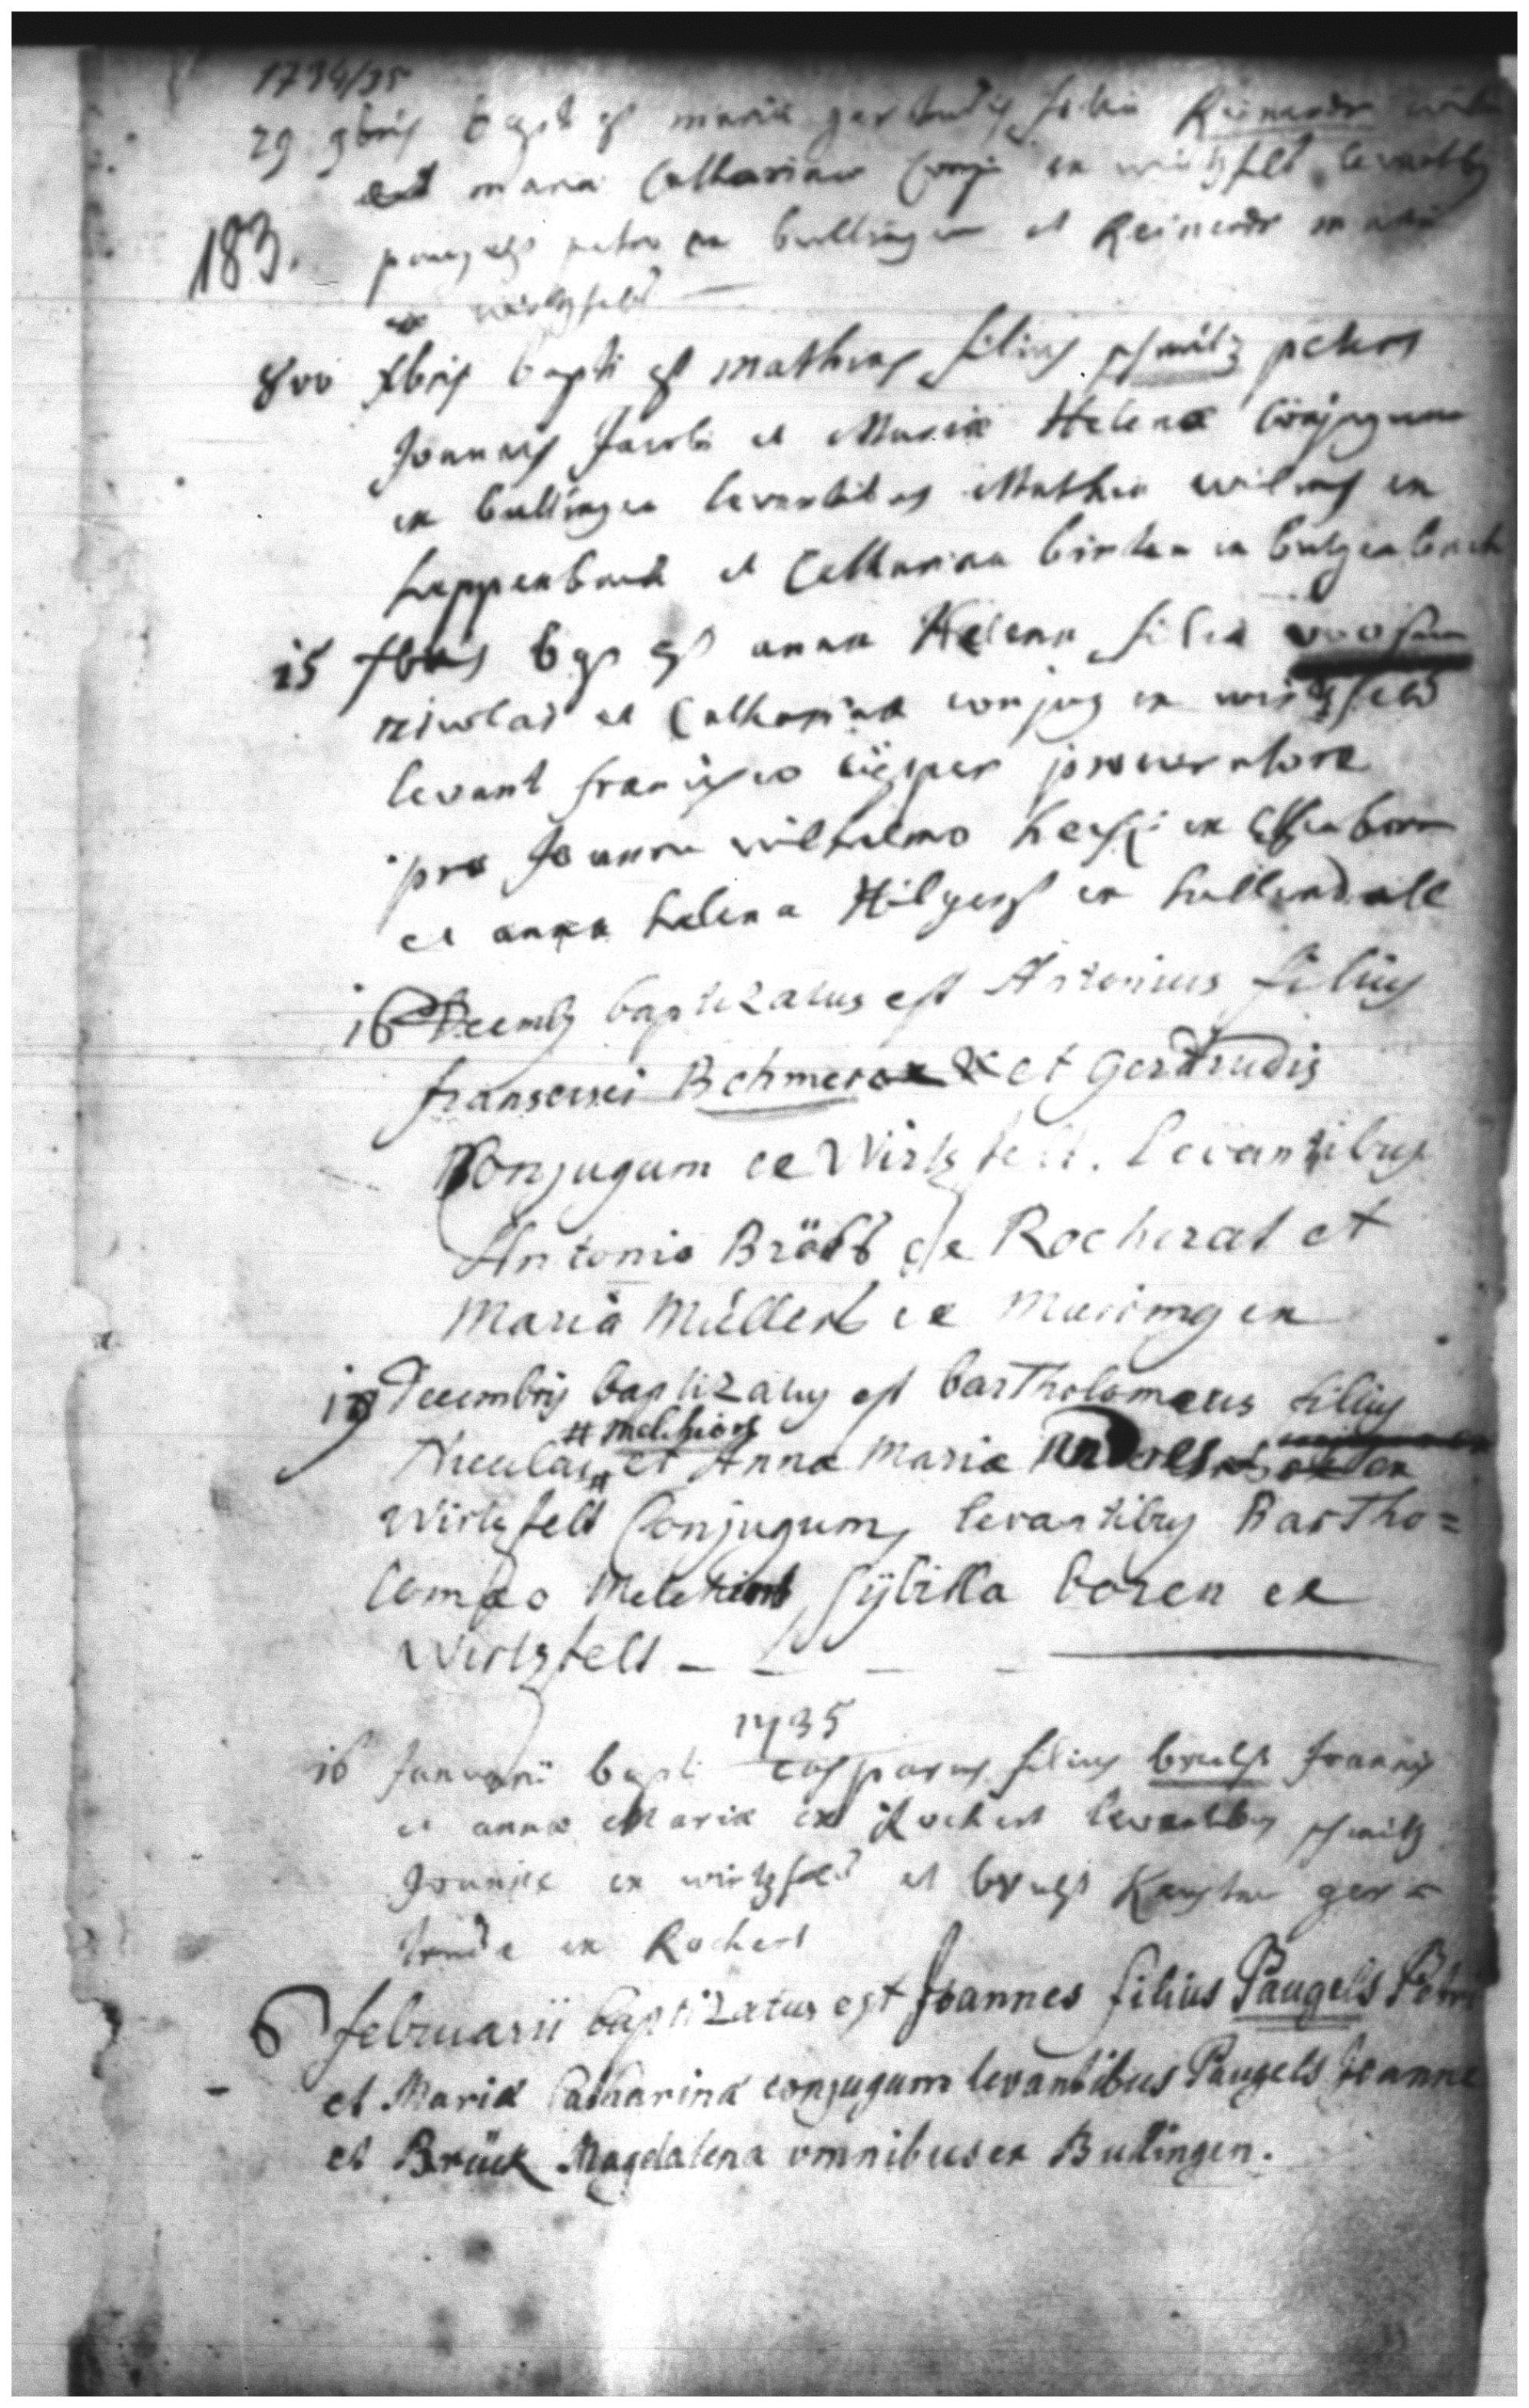 1734/35
29 9bris bapt est maria gertrudis filia Reinardz
et maria Catharinae conju ex wirtzfelt levantibq
183.
paugels petro ex bullingen et Reinardz maria
ex wirtzfelt
8vo xbris bapti est mathias filius schmitz peters
Joannis Jacobi et Mariæ Helenæ Conjugum
ex bullingen levantibus Mathia wilms ex
heppenbach et Catharina in butgenbach
15 xbris bap est anna Helena filia
nicolai et Catharinæ conjug ex wirtzfeld
levant francisco cüpper procuratore
pro Joanne wilhelmo ex Elsenborn
et anna helena Hilgers ex hollendall
16 Decembq baptizatus est Antonius filius
fransersei Behmer et Gerdrudis
Conjugum ex Wirtzfelt. levantibus
Antonio Brödt de Rocherat et
Maria Müllers ex
19 Decembris baptizatus est barTholomæus filius
# melchiors
Niculai # et Anna Maria ex
Wirtzfelt Conjugum, levantibus BarTho=
lomæo Melchiors, Sÿbilla bozen ex
Wirtzfelt - - - -
1735
16 Januarii bapti casparus filius brulss Joannis
et annæ Mariæ ex Rochert levantibus schmitz
Joanne ex wirtzfeld et brulss ger=
trude ex Rochert
6 februarii baptizatus est Joannes filius Paugels Petri
et Mariæ Catharinæ conjugum levantibus Paugels Joanne
et Brück Magdalena omnibus ex Bullingen.